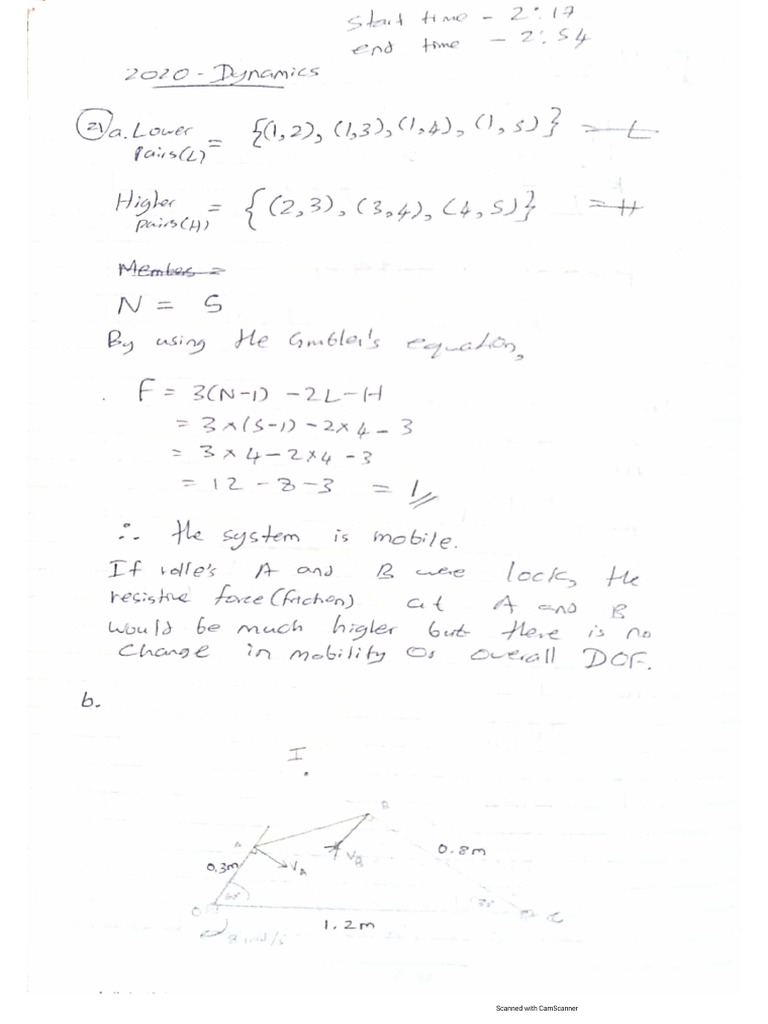 start time - 2:17
end time - 2:54
2020 - Dynamics
21) a. Lower Pairs(L) = {(1,2), (1,3), (1,4), (1,5)} = L
Higher Pairs(H) = {(2,3), (3,4), (4,5)} = H
Members =
N = 5
By using the Grubler's equation,
F = 3(N-1) - 2L - H
= 3×(5-1) - 2×4 - 3
= 3×4 - 2×4 - 3
= 12 - 8 - 3 = 1
∴ the system is mobile.
If rolle's A and B were lock, the
resistive force (friction) at A and B
would be much higher but there is no
change in mobility or overall DOF.
b.
I
B
A
0.8m
0.3m
VA
VB
30°
O
C
1.2m
Scanned with CamScanner